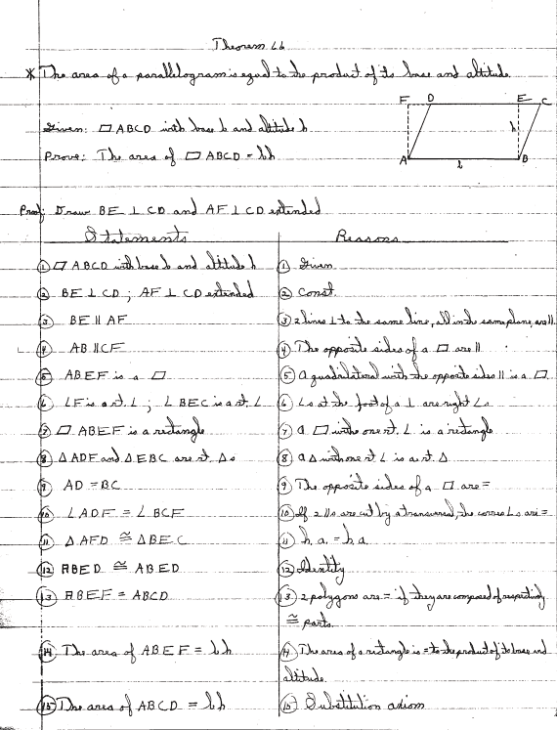 Theorem 66
* The area of a parallelogram is equal to the product of its base and altitude
F D E C
Given: ▱ ABCD with base b and altitude h
h
Prove: The area of ▱ ABCD = bh
A b B
Proof: Draw BE ⊥ CD and AF ⊥ CD extended
Statements Reasons
① ▱ ABCD with base b and altitude h ① Given
② BE ⊥ CD ; AF ⊥ CD extended ② Const.
③ BE ∥ AF ③ 2 lines ⊥ to the same line, all in the same plane, are ∥
④ AB ∥ CF ④ The opposite sides of a ▱ are ∥
⑤ ABEF is a ▱ ⑤ A quadrilateral with the opposite sides ∥ is a ▱
⑥ ∠F is a rt. ∠ ; ∠BEC is a rt. ∠ ⑥ ∠s at the foot of a ⊥ are right ∠s
⑦ ▱ ABEF is a rectangle ⑦ a ▱ with one rt. ∠ is a rectangle
⑧ △ADF and △EBC are rt. △s ⑧ a △ with one rt ∠ is a rt. △
⑨ AD = BC ⑨ The opposite sides of a ▱ are =
⑩ ∠ADF = ∠BCF ⑩ If 2 ∥s are cut by a transversal, the corres ∠s are =
⑪ △AFD ≅ △BEC ⑪ h.a. = h.a
⑫ ABED ≅ ABED ⑫ Identity
⑬ ABEF = ABCD ⑬ 2 polygons are = if they are composed of respectively
≅ parts.
⑭ The area of ABEF = bh ⑭ The area of a rectangle is = to the product of its base and
altitude.
⑮ The area of ABCD = bh ⑮ Substitution axiom